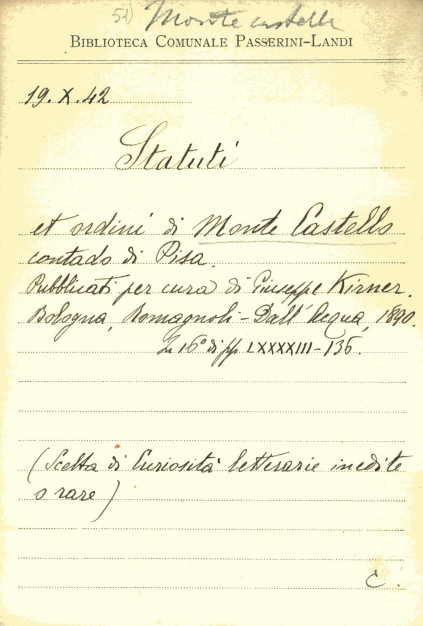 51) Monte castello
BIBLIOTECA COMUNALE PASSERINI-LANDI
19.X.42
Statuti
et ordini di Monte Castello
contado di Pisa.
Pubblicati per cura di Giuseppe Kirner.
Bologna, Romagnoli-Dall'Acqua, 1890.
In 16° di pp. LXXXXIII-136.
(Scelta di Curiosità letterarie inedite
o rare)
C.